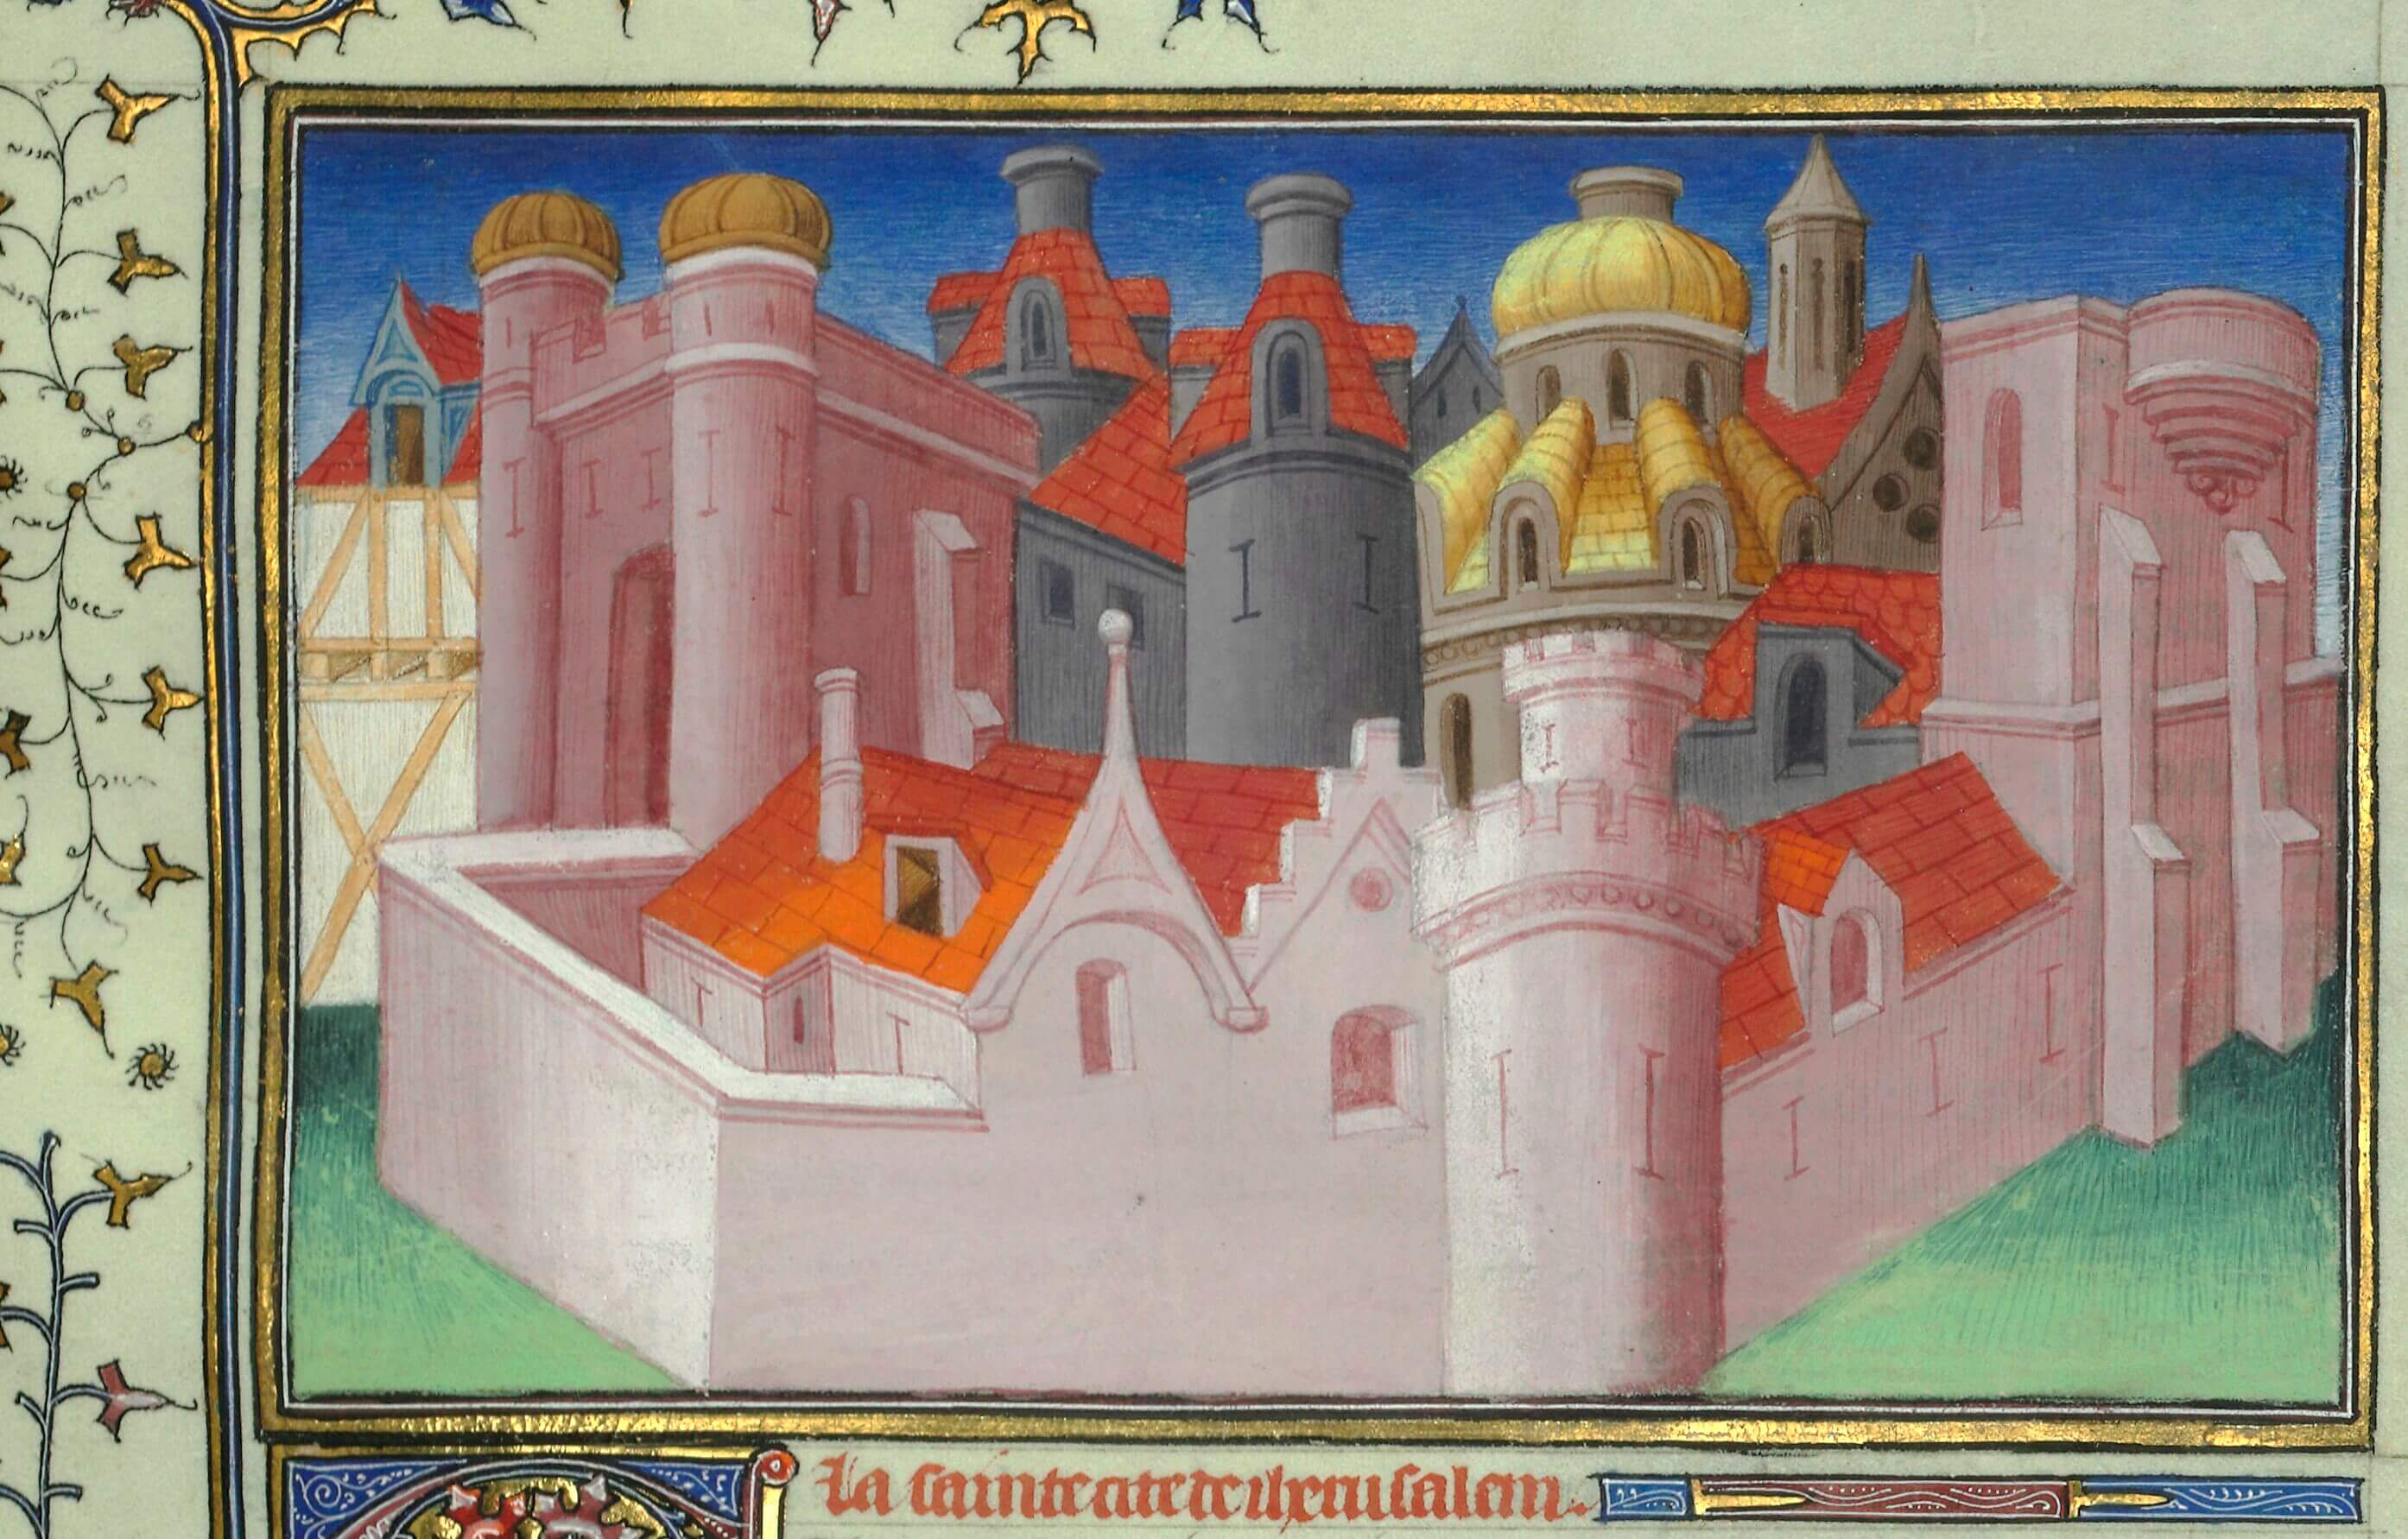 La sainte cite de iherusalem.